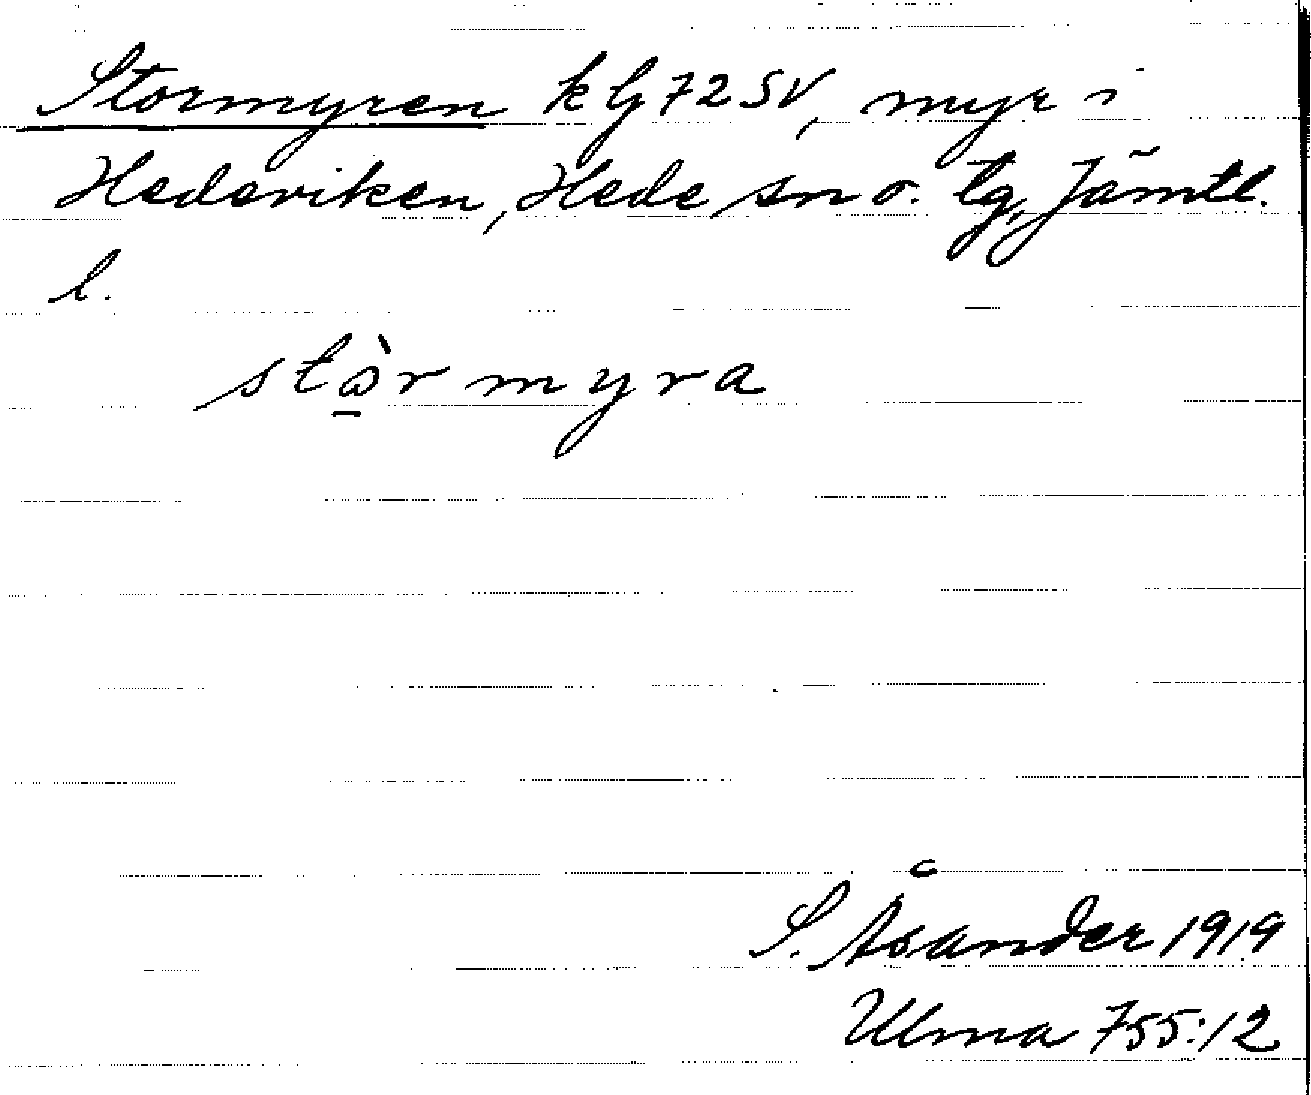 Stormyren kbl 72 SV, myr i
Hedeviken, Hede sn o. tg, Jämtl.
l.
stòr myra
S. Åsander 1919
Ulma 755:12